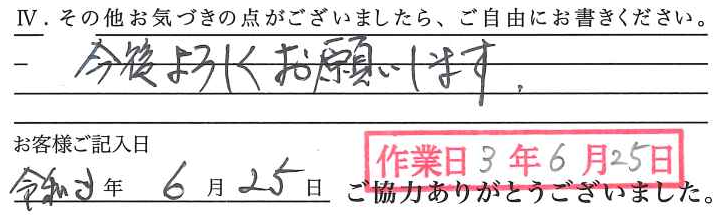 Ⅳ．その他お気づきの点がございましたら、ご自由にお書きください。
今後よろしくお願いします。
お客様ご記入日
作業日3年6月25日
令和3年6月25日
ご協力ありがとうございました。